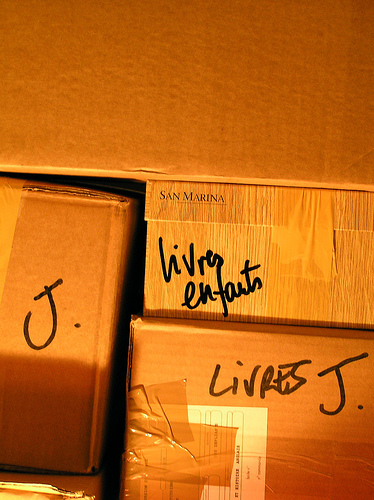 SAN MARINA
livres
enfants
J.
LIVRES J.